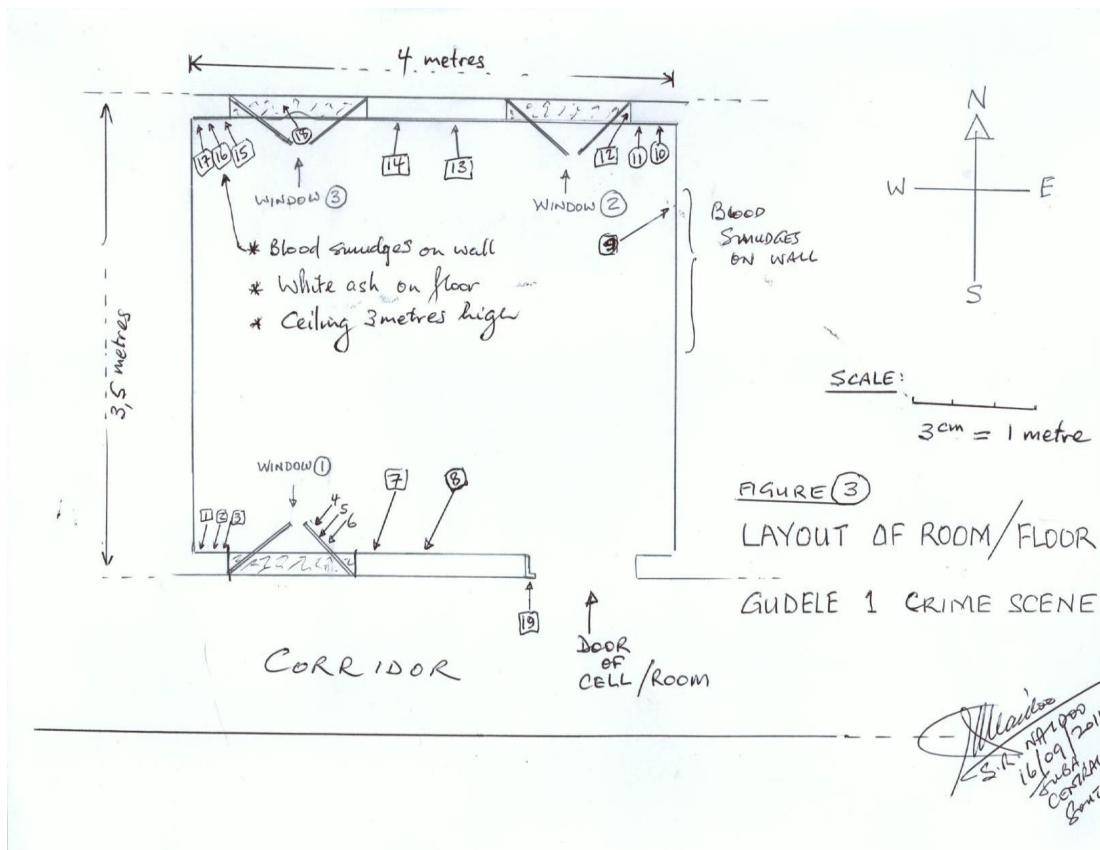 4 metres
N
W E
S
17 16 15
18
14
13
12 11 10
WINDOW 3
WINDOW 2
9
BLOOD
SMUDGES
ON WALL
* Blood smudges on wall
* White ash on floor
* Ceiling 3 metres high
3,5 metres
SCALE:
3 cm = 1 metre
WINDOW 1
1 2 3
4
5
6
7
8
19
FIGURE 3
LAYOUT OF ROOM/FLOOR
GUDELE 1 CRIME SCENE
CORRIDOR
DOOR
OF
CELL/ROOM
S.R. NAIDOO
16/09/201
JUBA
CENTRAL